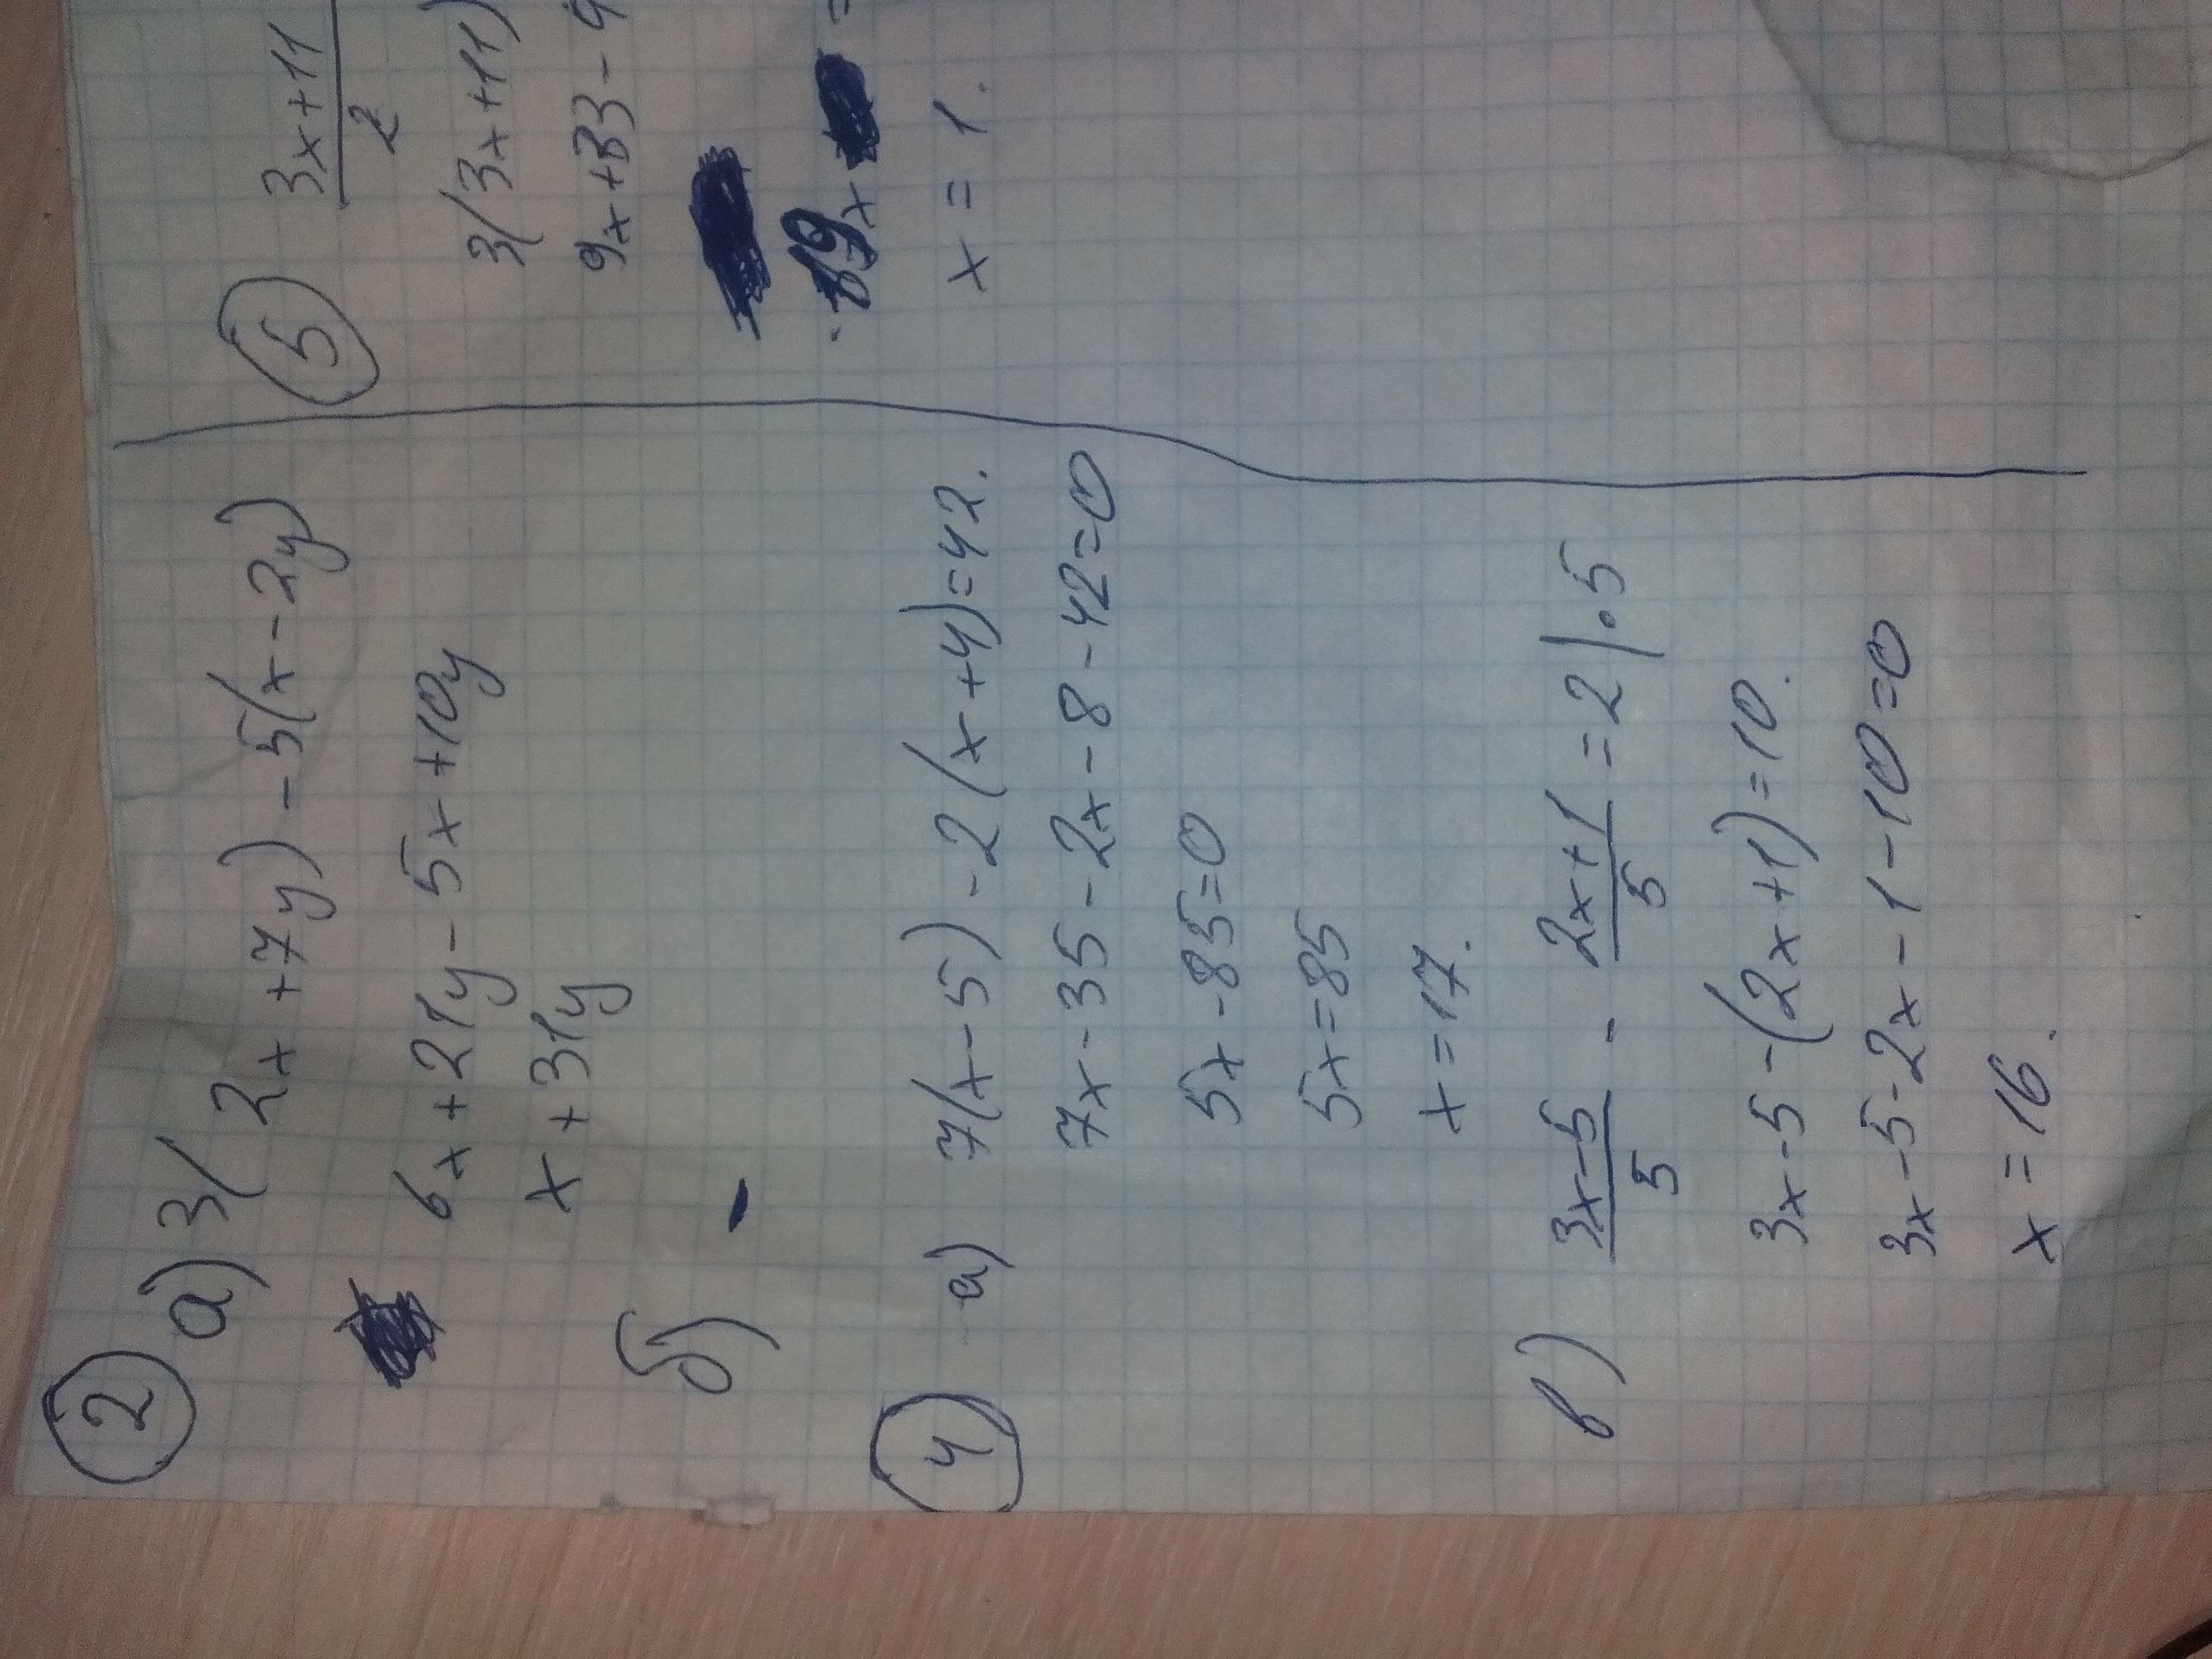 2 а) 3(2x+7y)-5(x-2y)
6x+21y-5x+10y
x+31y
б) -
4 а) 7(x-5)-2(x+4)=42.
7x-35-2x-8-42=0
5x-85=0
5x=85
x=17.
в) \frac{3x-5}{5} - \frac{2x+1}{5} = 2 | · 5
3x-5-(2x+1)=10.
3x-5-2x-1-10=0
x=16.
5 \frac{3x+11}{2}
3(3x+11)
9x+33-
19x =
x=1.